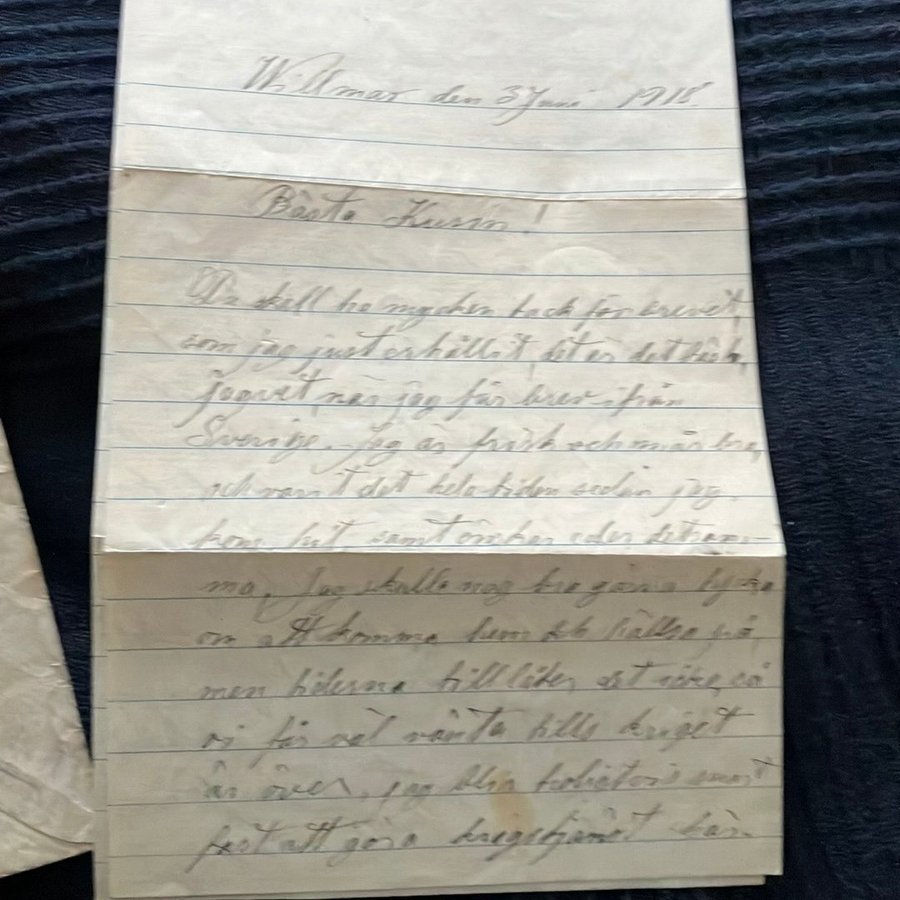 Willmar den 3 Juni 1918.
Bästa Kusin!
Du skall ha mycken tack för brevet,
som jag just erhållit, det är det bästa,
jag vet, när jag får brev ifrån
Sverige. jag är frisk och mår bra,
och varit det hela tiden sedan jag
kom hit, samt önskar eder detsam-
ma. Jag skulle nog bra gärna
om att komma hem och hälsa på,
men tiderna tillåter det icke, så
vi får väl vänta tills kriget
är över. jag blir snart
fast att göra krigstjänst här.